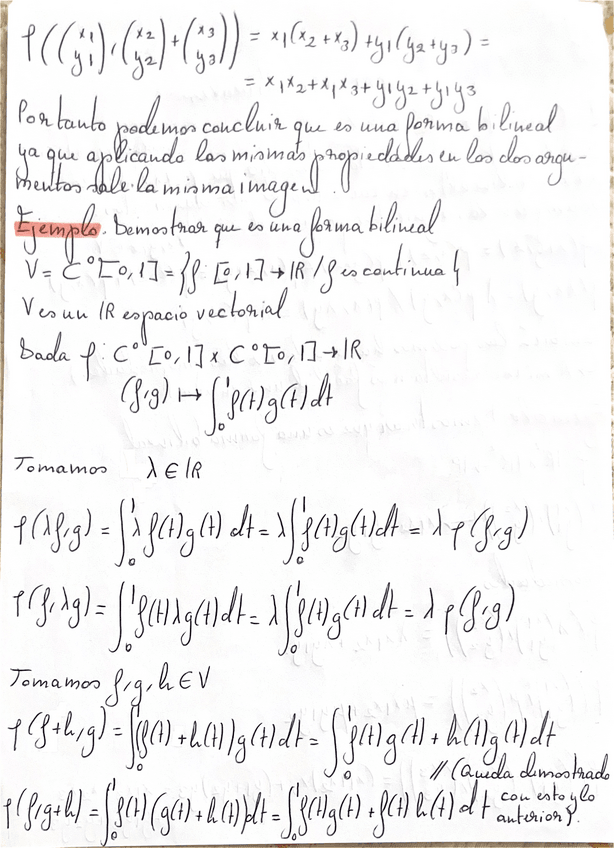 φ((x₁ y₁), (x₂ y₂) + (x₃ y₃)) = x₁(x₂+x₃) + y₁(y₂+y₃) =
= x₁x₂+x₁x₃+y₁y₂+y₁y₃
Por tanto podemos concluir que es una forma bilineal
ya que aplicando las mismas propiedades en los dos argu-
mentos sale la misma imagen.
Ejemplo. Demostrar que es una forma bilineal
V = C⁰[0,1] = {f: [0,1] → ℝ / f es continua}
V es un ℝ espacio vectorial
Dada φ: C⁰[0,1] x C⁰[0,1] → ℝ
(f,g) ↦ ∫₀¹ f(t)g(t)dt
Tomamos λ ∈ ℝ
φ(λf,g) = ∫₀¹ λf(t)g(t) dt = λ∫₀¹ f(t)g(t)dt = λφ(f,g)
φ(f,λg) = ∫₀¹ f(t)λg(t)dt = λ∫₀¹ f(t)g(t)dt = λφ(f,g)
Tomamos f,g,h ∈ V
φ(f+h,g) = ∫₀¹ (f(t)+h(t))g(t)dt = ∫₀¹ f(t)g(t) + h(t)g(t)dt
// (Queda demostrado
φ(f,g+h) = ∫₀¹ f(t)(g(t)+h(t))dt = ∫₀¹ f(t)g(t) + f(t)h(t)dt con esto y lo
anterior).